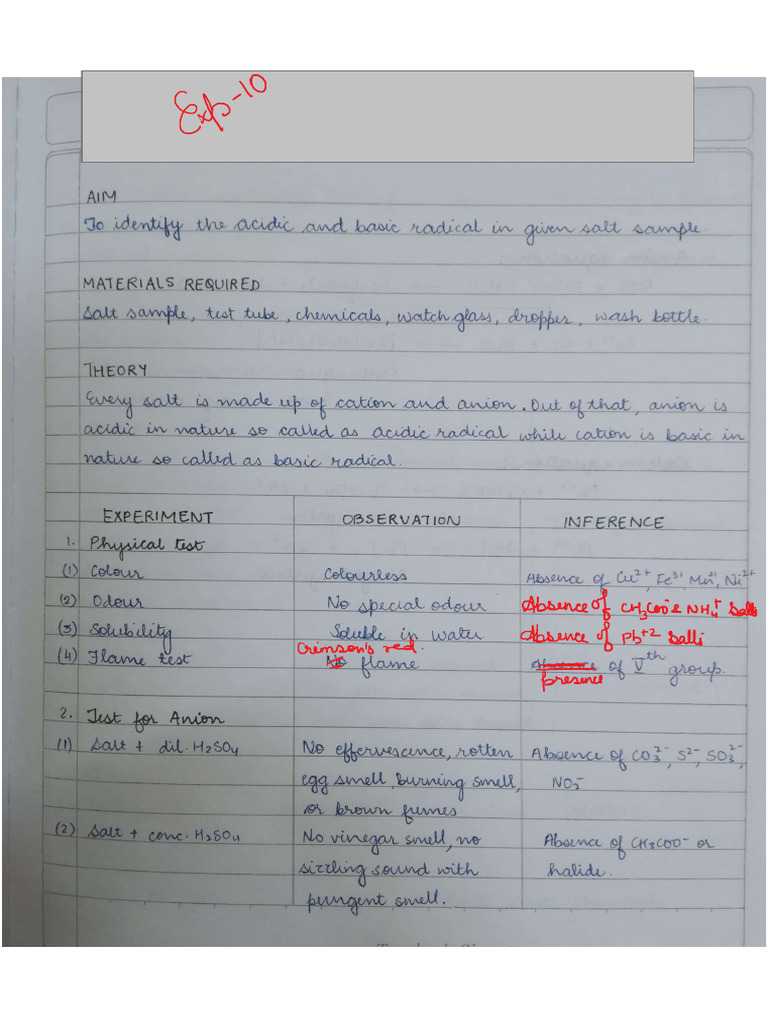 Exp-10
AIM
To identify the acidic and basic radical in given salt sample.
MATERIALS REQUIRED
Salt sample, test tube, chemicals, watch glass, dropper, wash bottle.
THEORY
Every salt is made up of cation and anion. Out of that, anion is
acidic in nature so called as acidic radical while cation is basic in
nature so called as basic radical.
EXPERIMENT OBSERVATION INFERENCE
1. Physical test
(1) Colour Colourless Absence of Cu²⁺, Fe³⁺, Mn²⁺, Ni²⁺
(2) Odour No special odour Absence of CH₃COO⁻ & NH₄⁺ Salts
(3) Solubility Soluble in water Absence of Pb⁺² Salts
Crimson's red.
(4) Flame test flame of Vᵗʰ group.
presence
2. Test for Anion
(1) Salt + dil. H₂SO₄ No effervescence, rotten Absence of CO₃²⁻, S²⁻, SO₃²⁻,
egg smell, burning smell, NO₂⁻
or brown fumes
(2) Salt + conc. H₂SO₄ No vinegar smell, no Absence of CH₃COO⁻ or
sizzling sound with halide.
pungent smell.